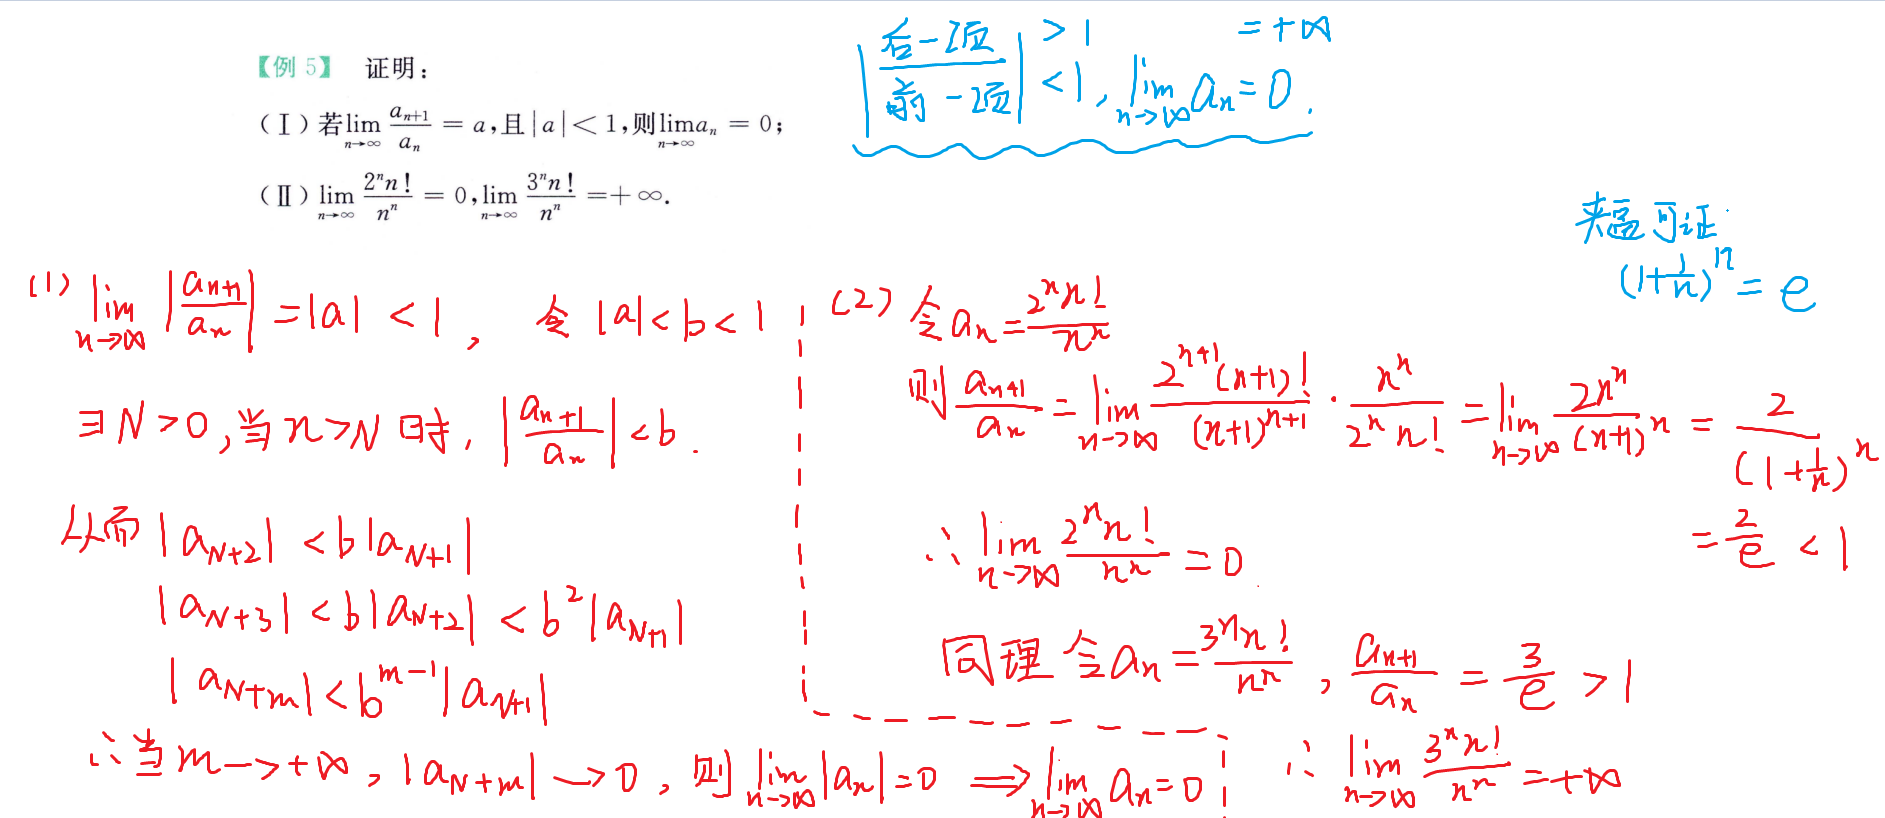 【例 5】 证明：
（Ⅰ）若$\lim\limits_{n\to\infty}\frac{a_{n+1}}{a_n}=a$,且$|a|<1$,则$\lim\limits_{n\to\infty}a_n=0$;
（Ⅱ）$\lim\limits_{n\to\infty}\frac{2^n n!}{n^n}=0$,$\lim\limits_{n\to\infty}\frac{3^n n!}{n^n}=+\infty$.
$\left|\frac{后一项}{前一项}\right|$ $>1$ $=+\infty$
$<1$, $\lim\limits_{n\to\infty}a_n=0$.
夹逼可证
$(1+\frac{1}{n})^n=e$
(1) $\lim\limits_{n\to\infty}\left|\frac{a_{n+1}}{a_n}\right|=|a|<1$, 令 $|a|<b<1$
$\exists N>0$,当$n>N$时, $\left|\frac{a_{n+1}}{a_n}\right|<b$.
从而 $|a_{N+2}|<b|a_{N+1}|$
$|a_{N+3}|<b|a_{N+2}|<b^2|a_{N+1}|$
$|a_{N+m}|<b^{m-1}|a_{N+1}|$
∴当$m\to+\infty$, $|a_{N+m}|\to0$, 则$\lim\limits_{n\to\infty}|a_n|=0\Rightarrow\lim\limits_{n\to\infty}a_n=0$
(2) 令$a_n=\frac{2^n n!}{n^n}$
则$\frac{a_{n+1}}{a_n}=\lim\limits_{n\to\infty}\frac{2^{n+1}(n+1)!}{(n+1)^{n+1}}\cdot\frac{n^n}{2^n n!}=\lim\limits_{n\to\infty}\frac{2n^n}{(n+1)^n}=\frac{2}{(1+\frac{1}{n})^n}$
$=\frac{2}{e}<1$
∴$\lim\limits_{n\to\infty}\frac{2^n n!}{n^n}=0$.
同理 令$a_n=\frac{3^n n!}{n^n}$, $\frac{a_{n+1}}{a_n}=\frac{3}{e}>1$
∴$\lim\limits_{n\to\infty}\frac{3^n n!}{n^n}=+\infty$